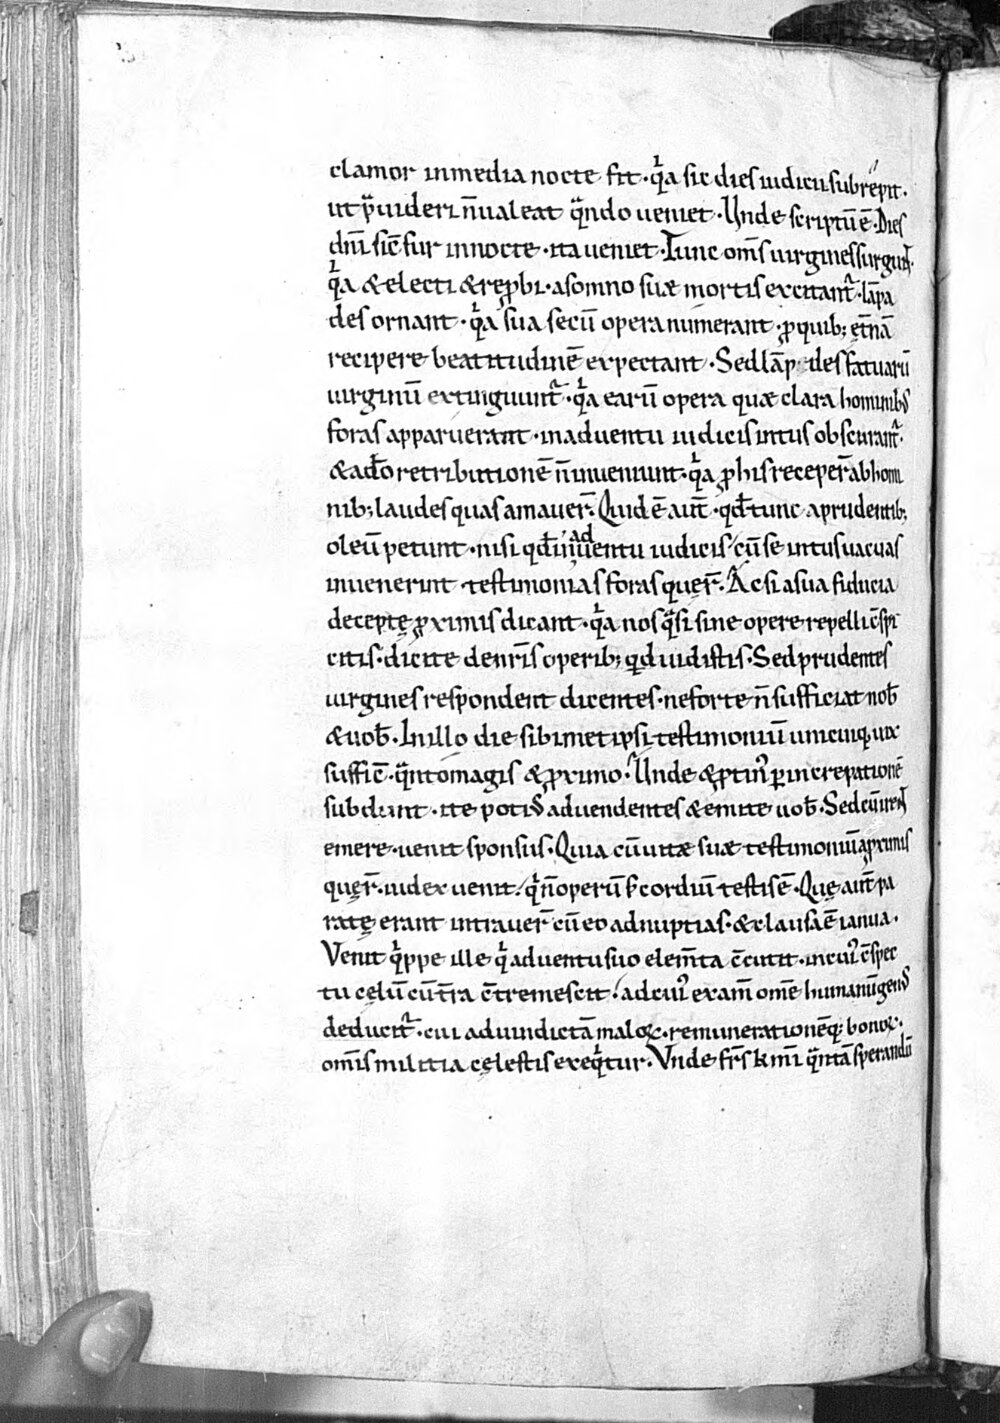 clamor in media nocte fit · q̇a sic dies iudicii subrepit ·
ut p̃uideri ñ ualeat q̃ndo ueniet · Unde scriptũ ẽ · Dies
dñi sic̃ fur in nocte · ita ueniet · Tunc om̃s uirgines surgunt̃ ·
q̇a & electi & reꝓbi · a somno suæ mortis excitant̃ · lãpa
des ornant · q̇a sua secũ opera numerant · ꝓ quib; et̃nã
recipere beatitudinẽ expectant · Sed lãpades fatuarũ
uirginũ extinguunt̃ · q̇a earũ opera quæ clara hominib;
foras apparuerant · in aduentu iudicis intus obscurant̃ ·
& a dõ retributionẽ ñ inueniunt · q̇a ꝓ his receper̃ ab homi
nib; laudes quas amauer̃ · Quid ẽ aut̃ · qđ tunc a prudentib;
oleũ petunt · nisi qđ in aduentu iudicis cũ se intus uacuas
inuenerint · testimonias foras quęr̃ · Ac si a sua fiducia
deceptę ꝓximis dicant · q̇a nos q̃si sine opere repelli c̃spi
citis · dicite de nr̃is operib; quid uidistis · Sed prudentes
uirgines respondent dicentes · ne forte ñ sufficiat nob̃
& uob̃ · In illo die sibimet ipsi testimoniũ unicuiq; uix
suffic̃ · q̃nto magis & ꝓximo · Unde & ꝓtin᷒ ꝑ increpationẽ
subdunt · ite poti᷒ ad uendentes & emite uob̃ · Sed cũ irent
emere · uenit sponsus · Quia cũ uitæ suæ testimoniũ a ꝓximis
quęr̃ · iudex uenit · q̇ ñ operũ s; cordiũ testis ẽ · Quę aut̃ pa
ratę erant intrauer̃ cũ eo ad nuptias · & clausa ẽ ianua ·
Venit q̇ppe ille q̇ aduentu suo elem̃ta c̃cutit · in cui᷒ c̃spec
tu cęlũ cũ t̃ra c̃tremescit · ad cui᷒ exam̃ om̃e humanũ gen᷒
deducit̃ · cui ad uindictã maloꝝ · remunerationẽq; bonoꝝ ·
om̃is militia cęlestis exeq̇tur · Vnde fr̃s k̃mi q̃ntã sperandũ